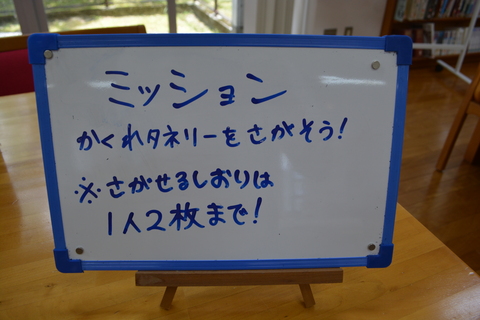 ミッション
かくれタネリーをさがそう!
※さがせるしおりは
1人2枚まで!